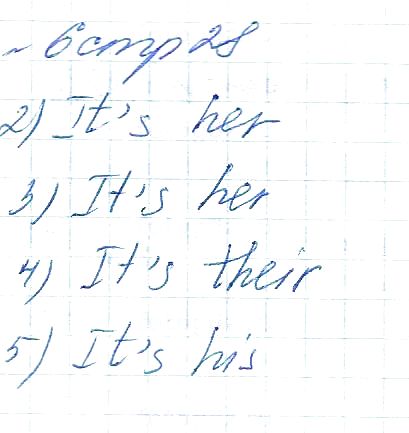 ~ 6 стр 28
2) It's her
3) It's her
4) It's their
5) It's his